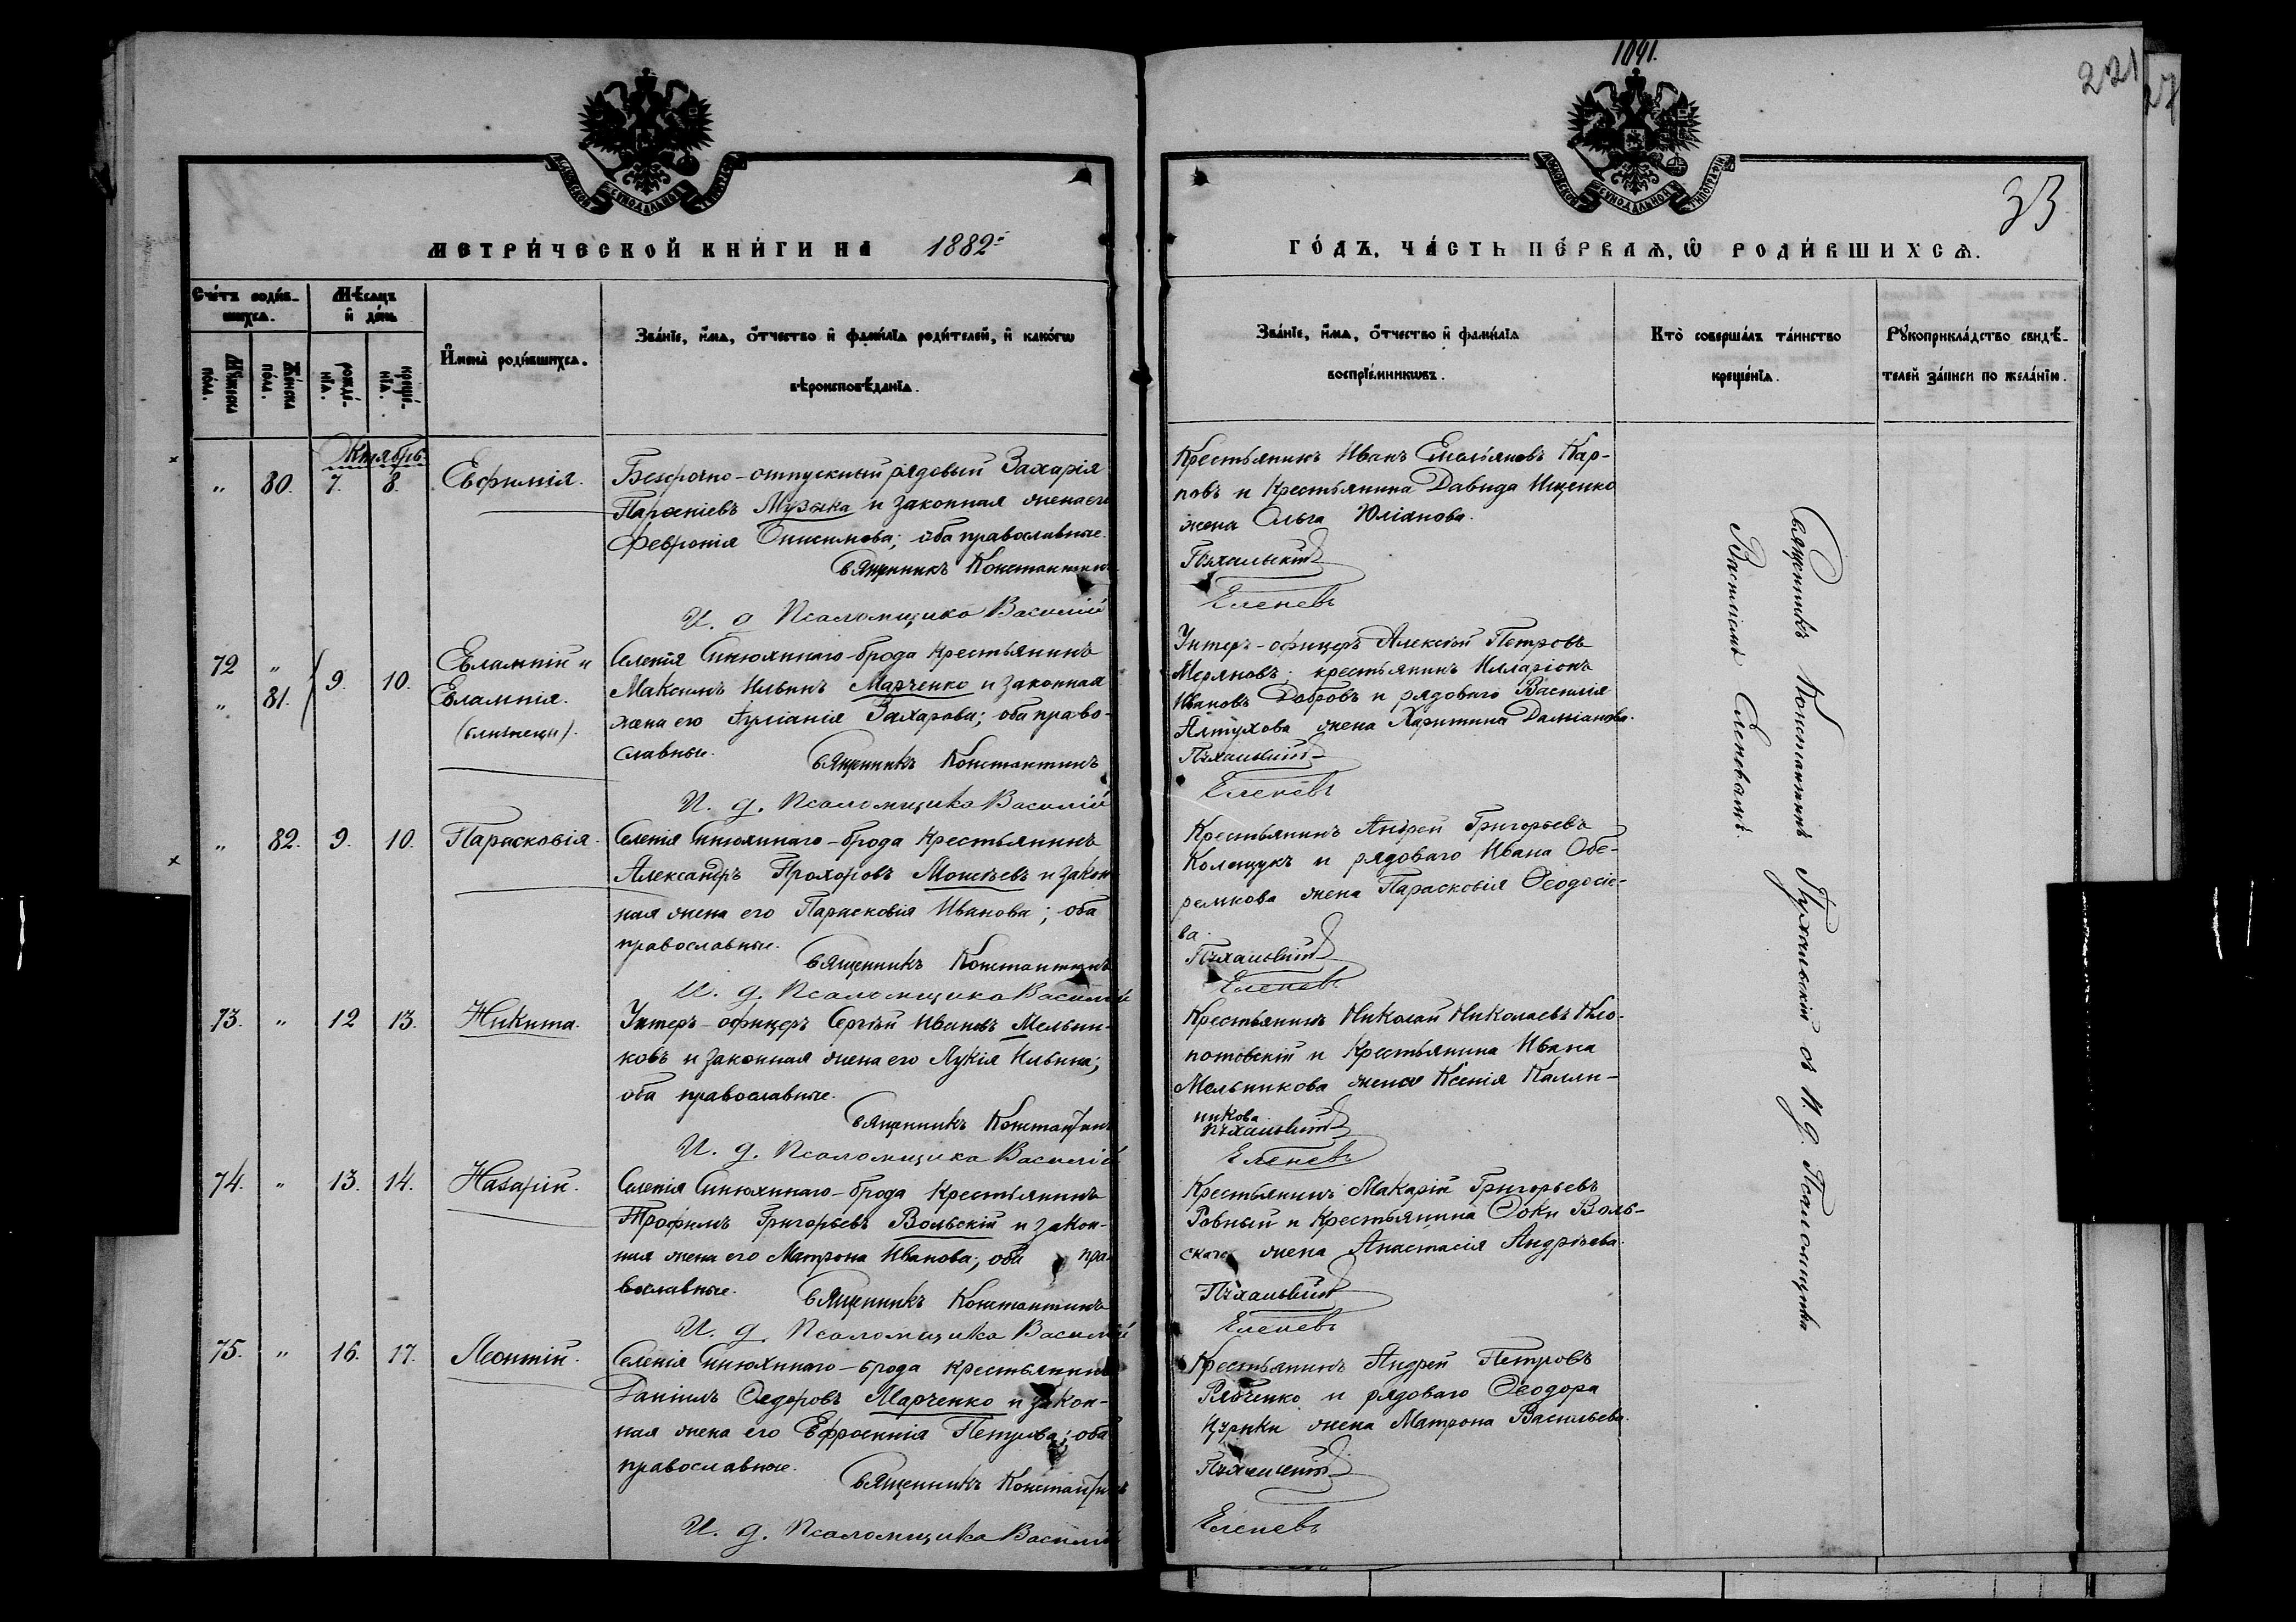 1891.
221
27
33
МОСКОВСКОЙ СѴНОДАЛЬНОЙ ТИПОГРАФІИ
МОСКОВСКОЙ СѴНОДАЛЬНОЙ ТИПОГРАФІИ
МЕТРИ́ЧЕСКОЙ КНИ́ГИ НА 1882 й
ГО́ДЪ, ЧА́СТЬ ПЕ́РВАѦ, Ѡ҆ РОДИ́ВШИХСѦ.
Сче́тъ роди́в-
шихсѧ.
Мѣ́сѧцъ
и҆ де́нь
Мꙋ́жеска по́ла.
Же́нска по́ла.
рожде́-нїѧ.
креще́-нїѧ.
И҆мена̀ роди́вшихсѧ.
Зва́нїе, и҆́мѧ, ѻ҆́тчество и҆ фами́лїѧ роди́телей, и҆ како́гѡ
вѣроисповѣ́данїѧ.
Зва́нїе, и҆́мѧ, ѻ҆́тчество и҆ фами́лїѧ
воспрїе́мникѡвъ.
Кто̀ соверша́лъ та́инство
креще́нїѧ.
Рꙋкоприкла́дство свидѣ́-
телей за́писи по жела́нїю.
Октябрь.
" 80. 7. 8. Евфимія.
Безсрочно-отпускный рядовый Захарія
Парѳеніевъ Музыка и законная жена его
Февронія Онисимова; оба православные.
Священникъ Константинъ
И. д. Псаломщика Василій
Крестьянинъ Иванъ Емельяновъ Кар-
повъ и Крестьянина Давида Ищенко
жена Ольга Юліанова.
Пухальскій
Еленевъ
72 "
" 81. 9. 10.
Евлампій и
Евлампія.
(близнецы).
Селенія Синюхинаго-брода крестьянинъ
Максимъ Ильинъ Марченко и законная
жена его Іуліанія Захарова; оба право-
славные.
Священникъ Константинъ
И. д. Псаломщика Василій
Унтеръ-офицеръ Алексѣй Петровъ
крестьянинъ Илларіонъ
Ивановъ Добровъ и рядоваго Василія
жена Харитина Даміанова.
Пухальскій
Еленевъ
" 82. 9. 10. Парасковія.
Селенія Синюхинаго-брода Крестьянинъ
Александръ Прохоровъ Моисеевъ и закон-
ная жена его Парасковія Иванова; оба
православные.
Священникъ Константинъ
И. д. Псаломщика Василій
Крестьянинъ Андрей Григорьевъ
Колещукъ и рядоваго Ивана Обе-
ремкова жена Парасковія Ѳеодосіе-
ва.
Пухальскій
Еленевъ
73. " 12 13. Никита.
Унтеръ-офицеръ Сергѣй Ивановъ Мельни-
ковъ и законная жена его Лукія Ильина;
оба православные.
Священникъ Константинъ
И. д. Псаломщика Василій
Крестьянинъ Николай Николаевъ Кло-
потовскій и Крестьянина Ивана
Мельникова жена Ксенія Калли-
никова.
Пухальскій
Еленевъ
74. " 13. 14. Назарій.
Селенія Синюхинаго-брода Крестьянинъ
Трофимъ Григорьевъ Вольскій и закон-
ная жена его Матрона Иванова; оба пра-
вославные.
Священникъ Константинъ
И. д. Псаломщика Василій
Крестьянинъ Макарій Григорьевъ
Ровный и Крестьянина Ѳоки Воль-
скаго жена Анастасія Андрѣева.
Пухальскій
Еленевъ
75. " 16. 17. Леонтій.
Селенія Синюхинаго-брода крестьянинъ
Даніилъ Ѳедоровъ Марченко и закон-
ная жена его Ефросинія Петрова; оба
православные.
Священникъ Константинъ
И. д. Псаломщика Василій
Крестьянинъ Андрей Петровъ
Рябченко и рядоваго Ѳеодора
жена Матрона Васильева.
Пухальскій
Еленевъ
Священникъ Константинъ Пухальскій съ И. д. Псаломщика
Василіемъ Еленевымъ.